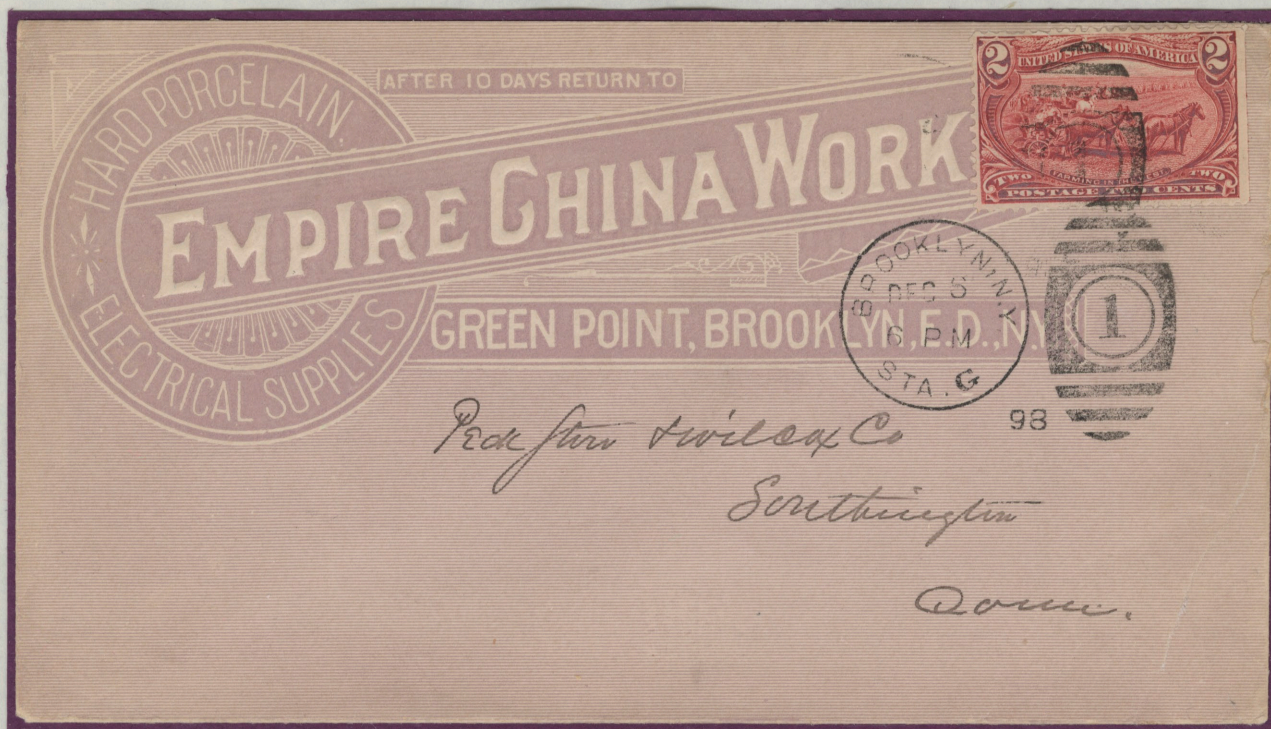 HARD PORCELAIN.
ELECTRICAL SUPPLIES
AFTER 10 DAYS RETURN TO
EMPIRE CHINA WORK
GREEN POINT, BROOKLYN, E.D., N.Y.
2 UNITED STATES OF AMERICA 2
FARMING IN THE WEST.
TWO TWO
POSTAGE TWO CENTS
BROOKLYN, N.Y.
DEC 6
6 PM
STA. G
98
1
Peck Stow & Wilcox Co
Southington
Conn.